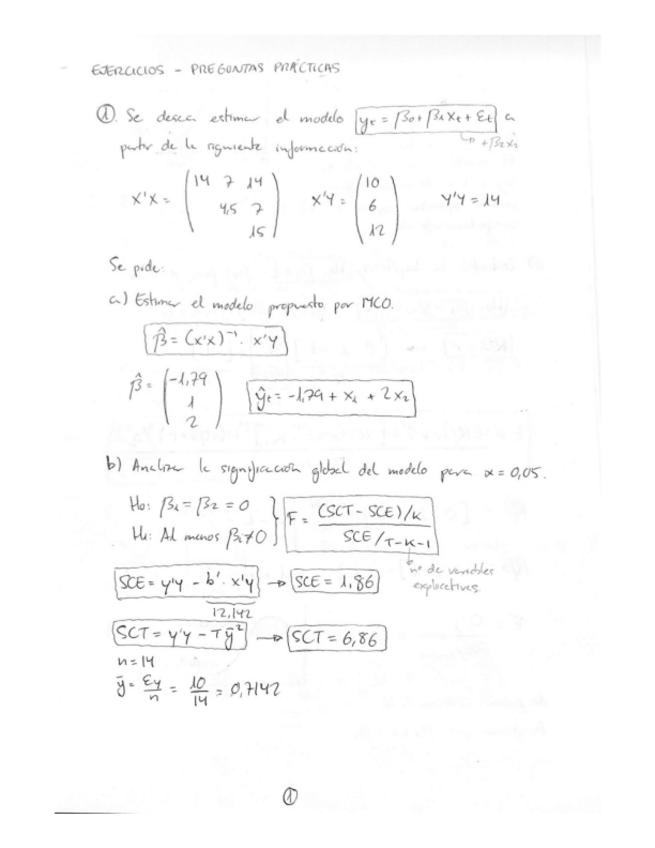 EJERCICIOS - PREGUNTAS PRÁCTICAS
① Se desea estimar el modelo yt = β0 + β1Xt + Et a
+ β2X2
partir de la siguiente información:
X'X = ( 14 7 14   X'Y = ( 10   Y'Y = 14
4,5 7   6
15 )   12 )
Se pide:
a) Estimar el modelo propuesto por MCO.
β̂ = (X'X)⁻¹ · X'Y
β̂ = ( -1,79   ŷt = -1,79 + X1 + 2X2
1
2 )
b) Analizar la significación global del modelo para α = 0,05.
Ho: β1 = β2 = 0 } F = (SCT - SCE)/K
H1: Al menos βi ≠ 0   SCE/T-K-1
nº de variables
explicativas.
SCE = y'y - b' · X'y → SCE = 1,86
12,142
SCT = y'y - Tȳ² → SCT = 6,86
n = 14
ȳ = Σy/n = 10/14 = 0,7142
①